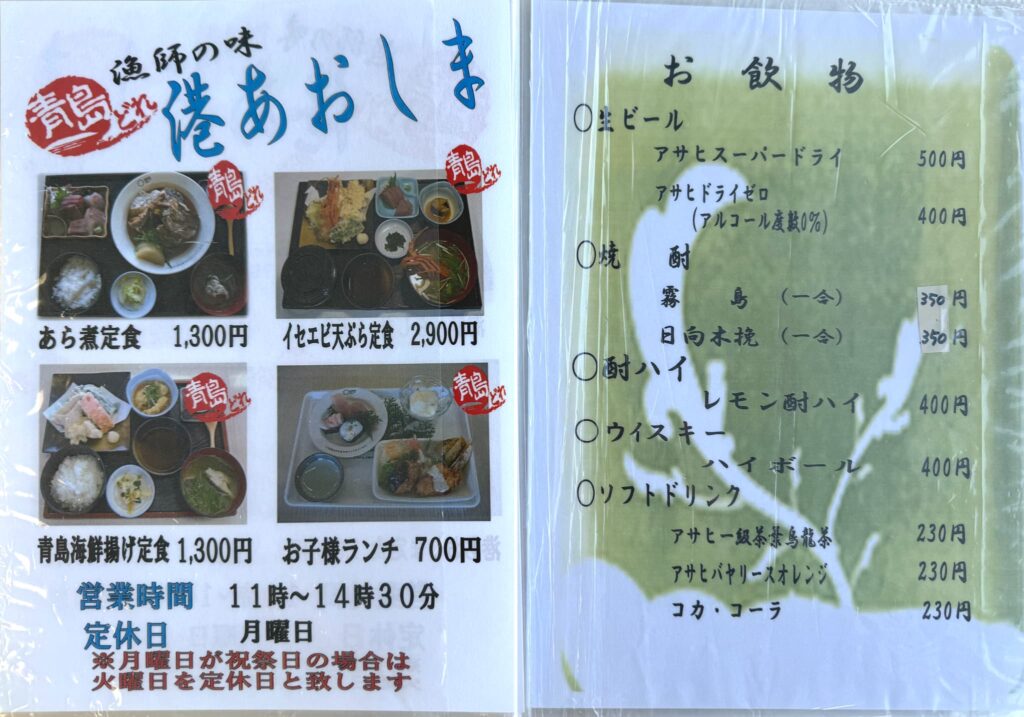 漁師の味
青島どれ
港あおしま
青島どれ
青島どれ
あら煮定食 1,300円
イセエビ天ぷら定食 2,900円
青島どれ
青島どれ
青島海鮮揚げ定食 1,300円
お子様ランチ 700円
営業時間 11時~14時30分
定休日 月曜日
※月曜日が祝祭日の場合は
火曜日を定休日と致します
お飲物
○生ビール
アサヒスーパードライ 500円
アサヒドライゼロ
(アルコール度数0%) 400円
○焼酎
霧島 (一合) 350円
日向木挽 (一合) 350円
○酎ハイ
レモン酎ハイ 400円
○ウイスキー
ハイボール 400円
○ソフトドリンク
アサヒ一級茶葉烏龍茶 230円
アサヒバヤリースオレンジ 230円
コカ・コーラ 230円